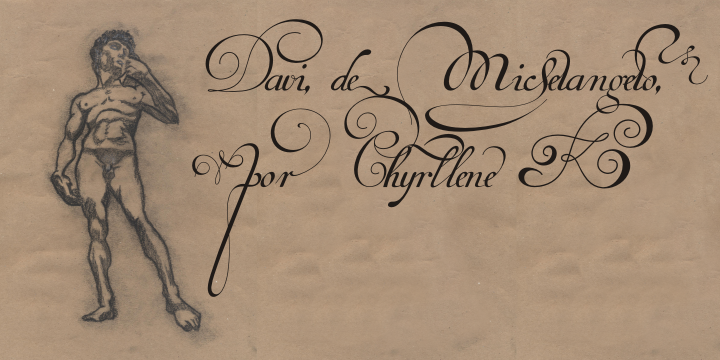 Davi, de Michelangelo,
por Chyrllene K